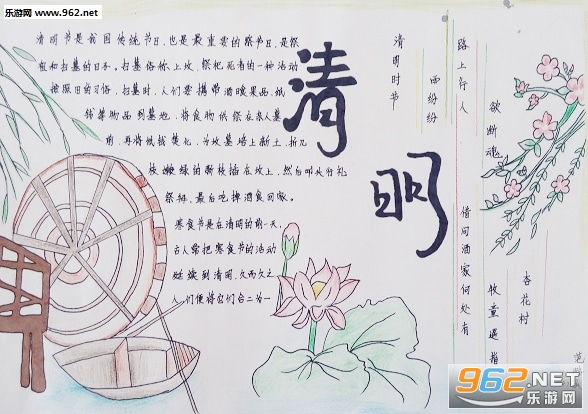 乐游网
www.962.net
清明节是我国传统节日,也是最重要的祭节日,是祭
祖和扫墓的日子。扫墓俗称上坟,祭祀死者的一种活动
按照旧的习俗,扫墓时,人们要携带酒食果品,纸
钱等物品到墓地,将食物供祭在亲人墓
前,再将纸钱焚化,为坟墓培上新土,折几
枝嫩绿的新枝插在坟上,然后叩头行礼
祭拜,最后吃掉酒食回家。
寒食节是在清明的前一天,
古人常把寒食节的活动
延续到清明,久而久之
人们便将它们合二为一
清明
清明时节
雨纷纷
路上行人
欲断魂
借问酒家何处有
牧童遥指
杏花村
962.NET
乐游网